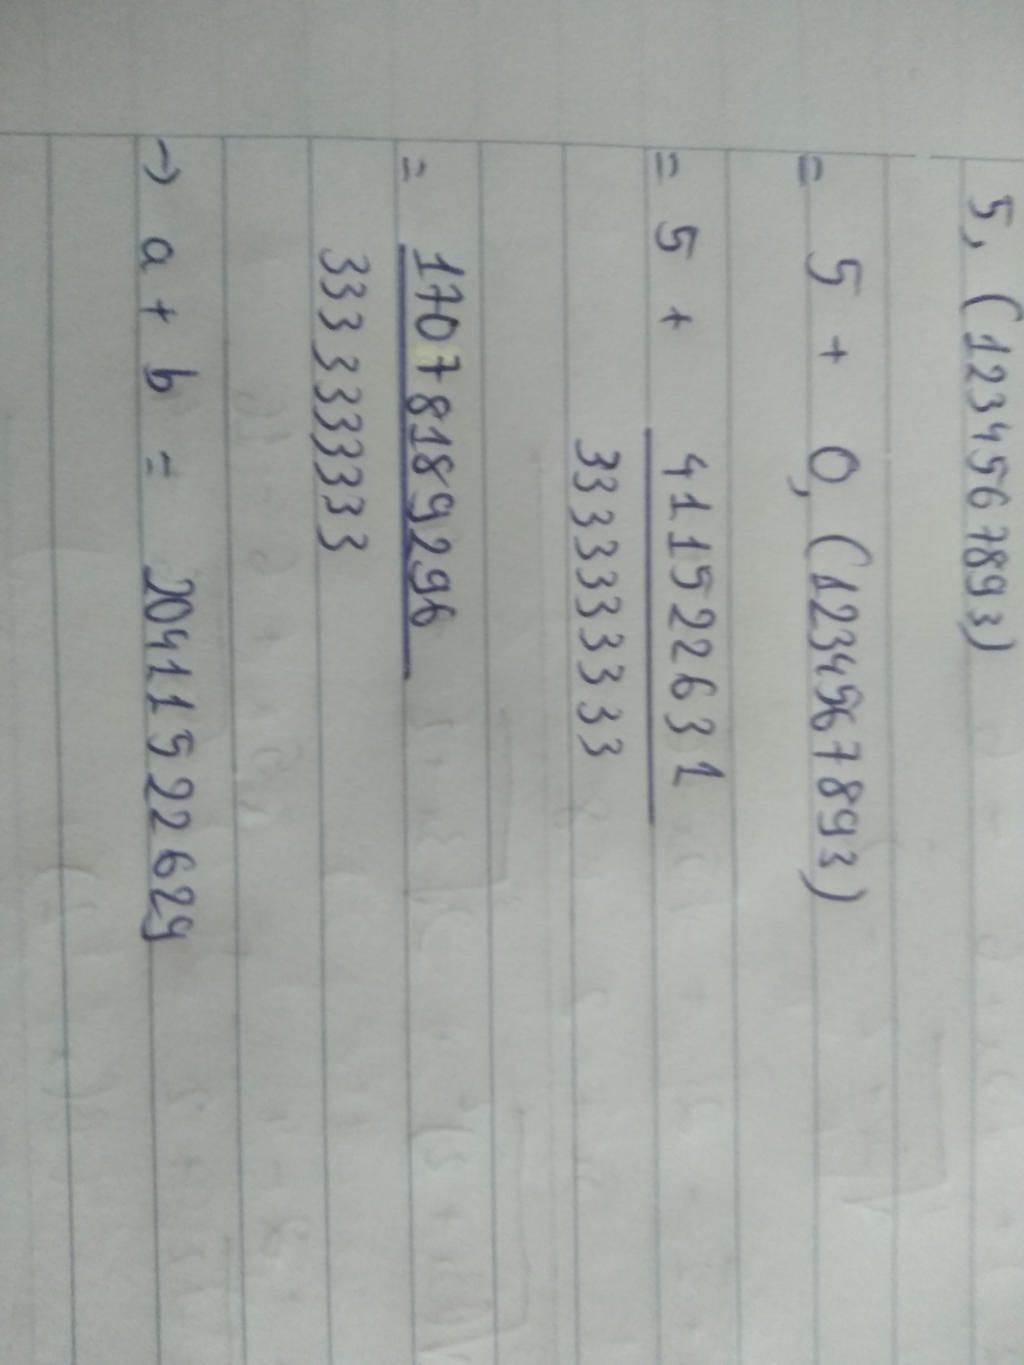 5,(1234567893)
= 5 + 0,(1234567893)
= 5 + 411522631
3333333333
= 17078189296
3333333333
→ a + b = 20411522629